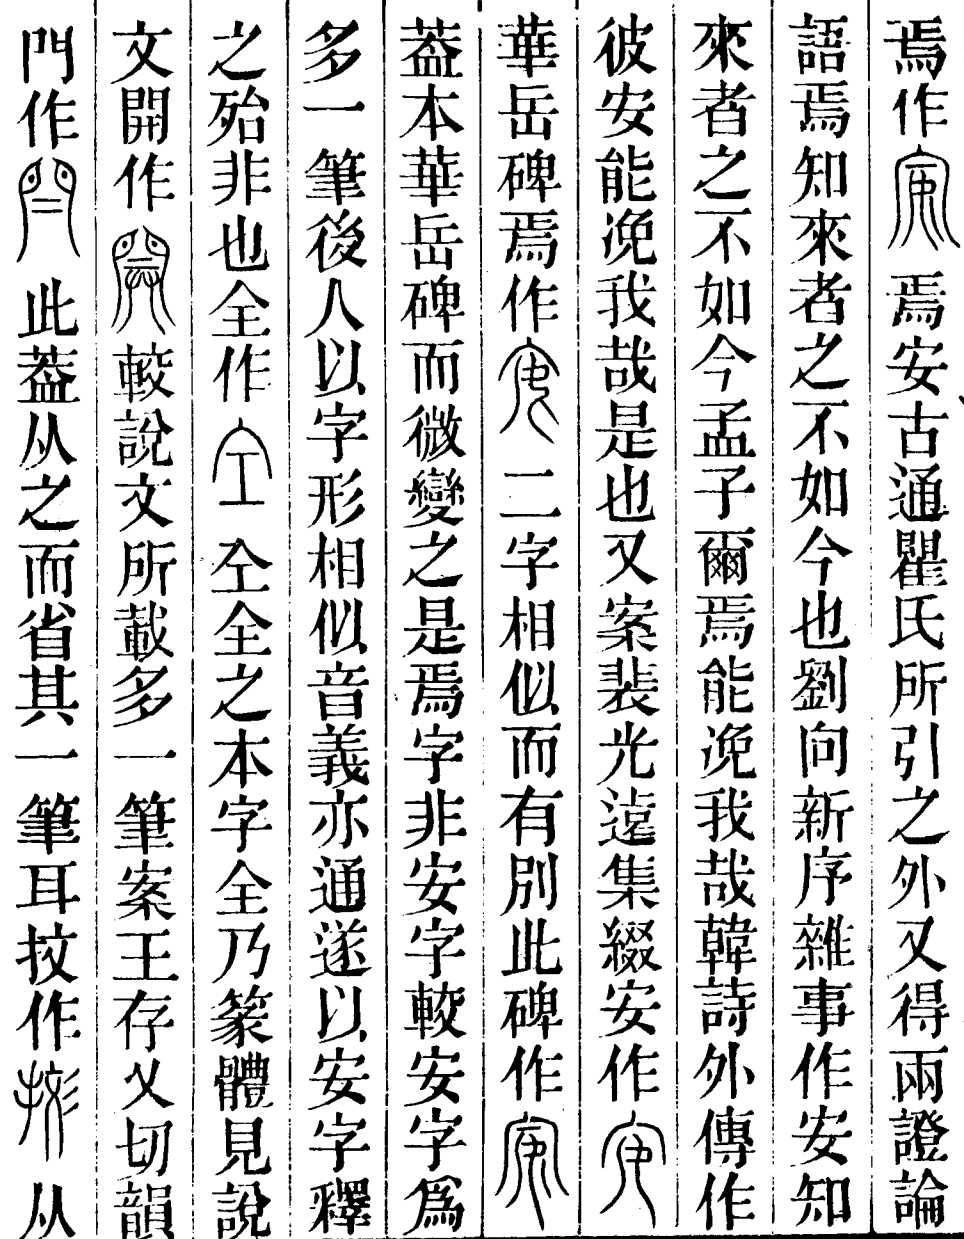 焉作焉安古通瞿氏所引之外又得兩證論
語焉知來者之不如今也劉向新序雜事作安知
來者之不如今孟子爾焉能浼我哉韓詩外傳作
彼安能浼我哉是也又案裴光遠集綴安作
華岳碑焉作二字相似而有別此碑作
葢本華岳碑而微變之是焉字非安字較安字爲
多一筆後人以字形相似音義亦通遂以安字釋
之殆非也全作仝全之本字全乃篆體見說
文開作較說文所載多一筆案王存乂切韻
門作此葢从之而省其一筆耳抆作从